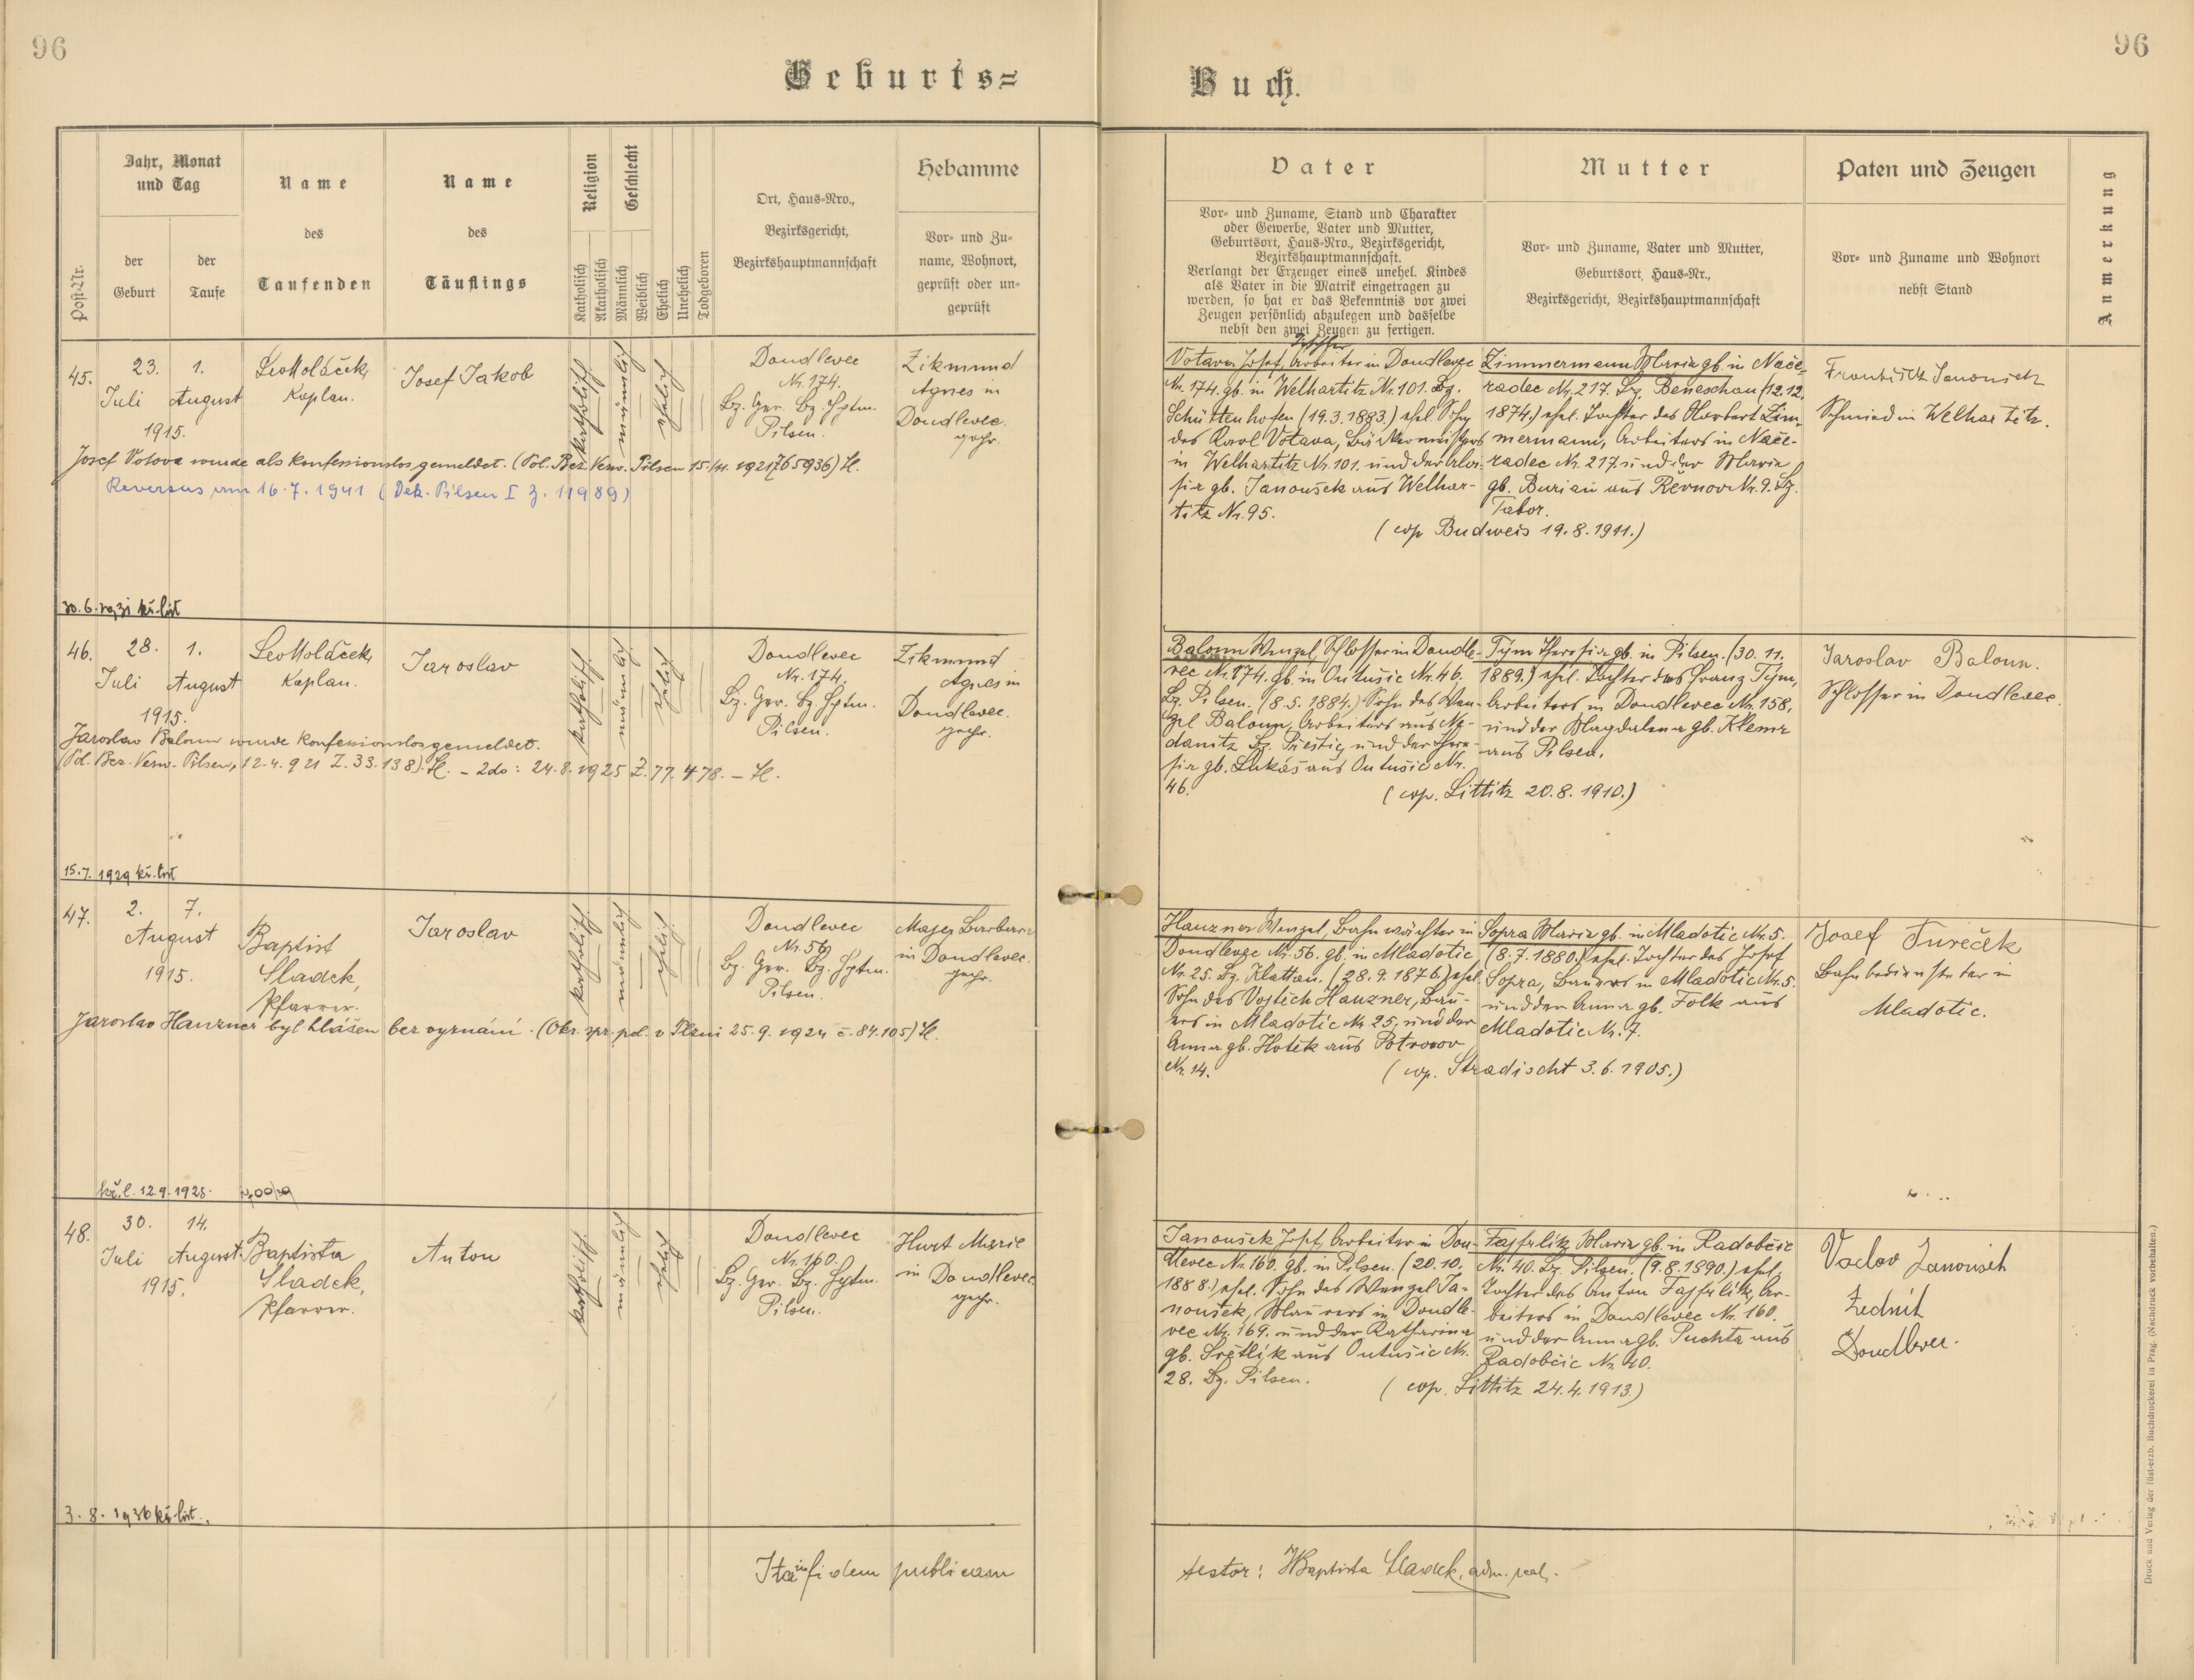 96
96
Geburts=
Buch.
Post-Nr.
Jahr, Monat
und Tag
der
Geburt
der
Taufe
Name
des
Taufenden
Name
des
Täuflings
Religion
Katholisch
Akatholisch
Geschlecht
Männlich
Weiblich
Ehelich
Unehelich
Todgeboren
Ort, Haus=Nro.,
Bezirksgericht,
Bezirkshauptmannschaft
Hebamme
Vor= und Zu=
name, Wohnort,
geprüft oder un=
geprüft
Vater
Vor= und Zuname, Stand und Charakter
oder Gewerbe, Vater und Mutter,
Geburtsort, Haus=Nro., Bezirksgericht,
Bezirkshauptmannschaft.
Verlangt der Erzeuger eines unehel. Kindes
als Vater in die Matrik eingetragen zu
werden, so hat er das Bekenntnis vor zwei
Zeugen persönlich abzulegen und dasselbe
nebst den zwei Zeugen zu fertigen.
Mutter
Vor= und Zuname, Vater und Mutter,
Geburtsort, Haus=Nr.,
Bezirksgericht, Bezirkshauptmannschaft
Paten und Zeugen
Vor= und Zuname und Wohnort
nebst Stand
Anmerkung
45.
23.
Juli
1.
August
1915.
Leo Koláček,
Kaplan.
Josef Jakob
katholisch
männlich
ehelich
Doudlevec
Nr. 174.
Bz. Ger. Bz. Hptm.
Pilsen.
Zikmund
Agnes in
Doudlevec.
gepr.
Josef Votava wurde als konfessionslos gemeldet. (Pol. Bez. Verw. Pilsen 15./11. 1921 Z 65936)
Reversus am 16.7.1941 (Dek. Pilsen I Z. 11989)
Votava Josef, Arbeiter in Doudlevec
Nr. 174. gb. in Welhartitz Nr. 101. Bz.
Schüttenhofen (19.3.1883.) ehel. Sohn
des Karl Votava, Bäckermeisters
in Welhartitz Nr. 101. und der Aloi-
sia gb. Janoušek aus Welhar-
titz Nr. 95.
Zimmermann Maria gb. in Nače-
radec Nr. 217. Bz. Beneschau (12.12.
1874.) ehel. Tochter des Zim-
mermann, Arbeiters in Nače-
radec Nr. 217. und der Maria
gb. Burian aus Řevnov Nr. 9. Bz.
Tabor.
(cop. Budweis 19.8.1911.)
František Janoušek
Schmied in Welhartitz.
30.6.1931 kř. list
46.
28.
Juli
1.
August
1915.
Leo Koláček,
Kaplan.
Jaroslav
katholisch
männlich
ehelich
Doudlevec
Nr. 174.
Bz. Ger. Bz. Hptm.
Pilsen.
Zikmund
Agnes in
Doudlevec.
gepr.
Jaroslav Baloun wurde konfessionslos gemeldet.
(Pol. Bez. Verw. Pilsen, 12.4.921 Z. 33.138). – 2do: 24.8.1925 Z. 77.478. –
Baloun Wenzel, Schlosser in Doudle-
vec Nr. 174. gb. in Outušic Nr. 46.
Bz. Pilsen. (8.5.1884.) Sohn des Wen-
zel Baloun, Arbeiters aus Ne-
danitz Bz. Přestic und der There-
sia gb. Lukáš aus Outušic Nr.
46.
Tým Theresia gb. in Pilsen. (30.11.
1889.) ehel. Tochter des Franz Tým,
Arbeiters in Doudlevec Nr. 158,
und der Magdalena gb. Klema
aus Pilsen.
(cop. Littitz 20.8.1910.)
Jaroslav Baloun.
Schlosser in Doudlevec.
15.7.1929 kř. list
47.
2.
7.
August
1915.
Baptist
Sladek,
Pfarrer.
Jaroslav
katholisch
männlich
ehelich
Doudlevec
Nr. 56
Bz. Ger. Bz. Hptm.
Pilsen.
Majer Barbara
in Doudlevec.
gepr.
Jaroslav Hauzner byl hlášen bez vyznání. (Okr. spr. pol. v Plzni 25.9.1924 č. 84.105)
Hauzner Wenzel, Bahnwächter in
Doudlevec Nr. 56. gb. in Mladotic
Nr. 25. Bz. Klattau. (28.9.1876.) ehel.
Sohn des Vojtěch Hauzner, Bau-
ers in Mladotic Nr. 25. und der
Anna gb. Hošek aus Potvorov
Nr. 14.
Sopra Maria gb. in Mladotic Nr. 5.
(8.7.1880.) ehel. Tochter des Josef
Sopra, Bauers in Mladotic Nr. 5.
und der Anna gb. Folk aus
Mladotic Nr. 7.
(cop. Stradischt 3.6.1905.)
Josef Tureček
Bahnbediensteter in
Mladotic.
kř. l. 12.9.1928.
48.
30.
Juli
14.
August
1915.
Baptista
Sladek,
Pfarrer.
Anton
katholisch
männlich
ehelich
Doudlevec
Nr. 160.
Bz. Ger. Bz. Hptm.
Pilsen.
Hurt Marie
in Doudlevec
gepr.
Janoušek Josef, Arbeiter in Dou-
dlevec Nr. 160. gb. in Pilsen. (20.10.
1888.) ehel. Sohn des Wenzel Ja-
noušek, Maurers in Doudle-
vec Nr. 169. und der Katharina
gb. Světlík aus Outušic Nr.
28. Bz. Pilsen.
Fajfrlik Maria gb. in Radobčic
Nr. 40. Bz. Pilsen. (9.8.1890.) ehel.
Tochter des Anton Fajfrlik, Ar-
beiters in Doudlevec Nr. 160.
und der Anna gb. Puchta aus
Radobčic Nr. 40.
(cop. Littitz 24.4.1913.)
Václav Janoušek
Zedník
Doudlevec.
3.8.1936 kř. list.
Ita in fidem publicam
testor: Baptista Sladek, adm. paroch.
Druck und Verlag der fürst-erzb. Buchdruckerei in Prag. (Nachdruck vorbehalten.)